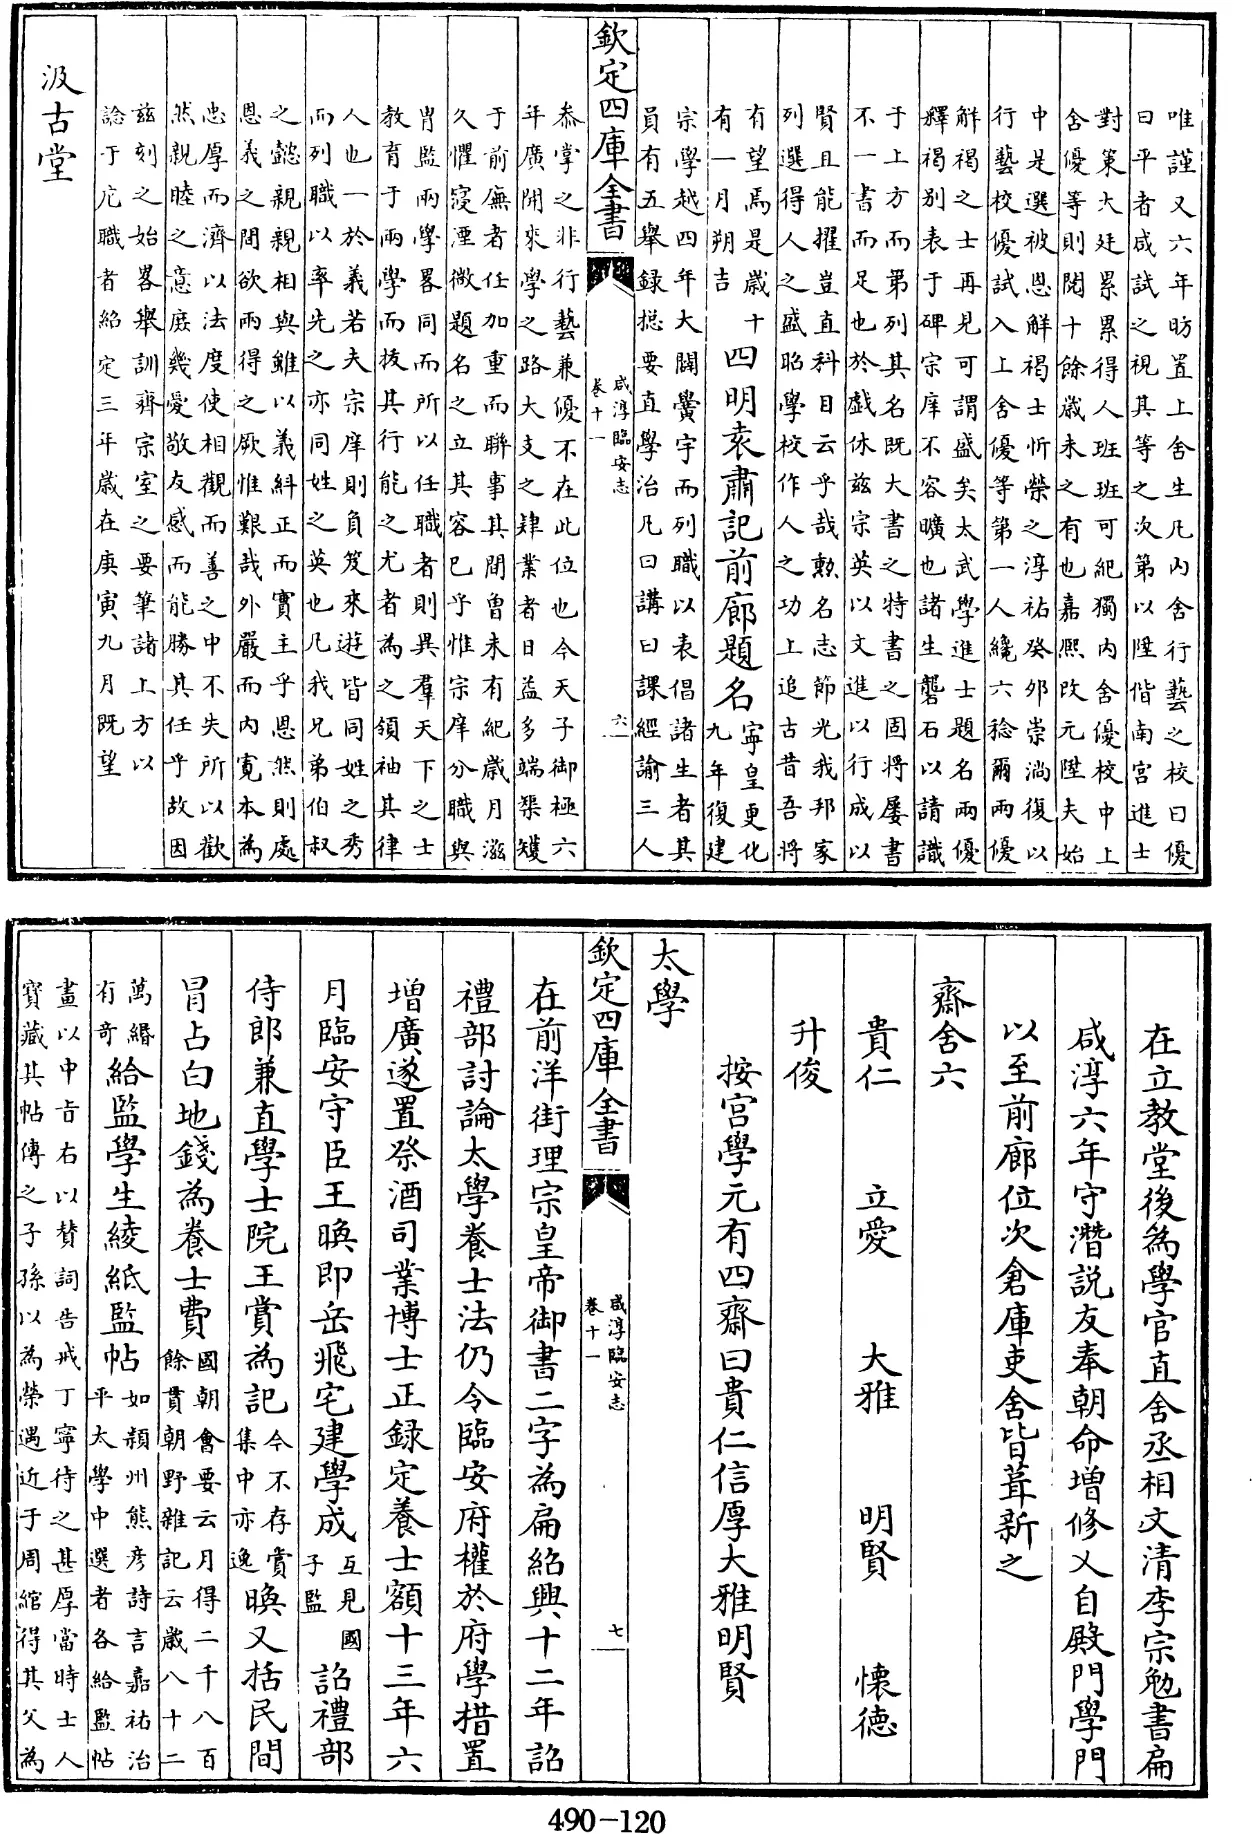 唯謹又六年昉置上舍生凡內舍行藝之校曰優
曰平者咸試之視其等之次第以陞偕南宮進士
對策大廷累累得人班班可紀獨內舍優校中上
舍優等則閱十餘歲未之有也嘉熙改元陞夫始
中是選被恩解褐士忻榮之淳祐癸夘崇淌復以
行藝校優試入上舍優等第一人纔六稔爾兩優
解褐之士再見可謂盛矣太武學進士題名兩優
釋褐別表于碑宗庠不容曠也諸生礱石以請識
于上方而第列其名既大書之特書之固將屢書
不一書而足也於戲休兹宗英以文進以行成以
賢且能擢豈直科目云乎哉勲名志節光我邦家
列選得人之盛昭學校作人之功上追古昔吾將
有望焉是歲十
有一月朔吉
四明袁肅記前廊題名
寧皇更化
九年復建
宗學越四年大闢黌宇而列職以表倡諸生者其
員有五舉録揔要直學治凡曰講曰課經諭三人
欽定四庫全書
咸淳臨安志
卷十一
六
叅掌之非行藝兼優不在此位也今天子御極六
年廣開來學之路大支之肄業者日益多端榘矱
于前廡者任加重而聯事其間曾未有紀歲月滋
久懼寖湮微題名之立其容已乎惟宗庠分職與
胄監兩學畧同而所以任職者則異羣天下之士
教育于兩學而拔其行能之尤者為之領袖其律
人也一於義若夫宗庠則負笈來遊皆同姓之秀
而列職以率先之亦同姓之英也凡我兄弟伯叔
之懿親親相與雖以義糾正而實主乎恩然則處
恩義之間欲兩得之厥惟艱哉外嚴而內寛本為
忠厚而濟以法度使相觀而善之中不失所以歡
然親睦之意庶幾愛敬友感而能勝其任乎故因
兹刻之始畧舉訓齊宗室之要筆諸上方以
諗于凢職者紹定三年歲在庚寅九月既望
汲古堂
在立教堂後為學官直舍丞相文清李宗勉書扁
咸淳六年守潛説友奉朝命増修乂自殿門學門
以至前廊位次倉庫吏舍皆葺新之
齋舍六
貴仁 立愛 大雅 明賢 懐德
升俊
按宮學元有四齋曰貴仁信厚大雅明賢
太學
欽定四庫全書
咸淳臨安志
卷十一
七
在前洋街理宗皇帝御書二字為扁紹興十二年詔
禮部討論太學養士法仍令臨安府權於府學措置
増廣遂置祭酒司業博士正録定養士額十三年六
月臨安守臣王㬇即岳飛宅建學成
互見國
子監
詔禮部
侍郎兼直學士院王賞為記
今不存賞
集中亦逸
㬇又括民間
冐占白地錢為養士費
國朝會要云月得二千八百
餘貫朝野雜記云歲八十二
萬緡
有奇
給監學生綾紙監帖
如潁州熊彦詩言嘉祐治
平太學中選者各給監帖
畫以中㫖右以賛詞告戒丁寧待之甚厚當時士人
寳藏其帖傳之子孫以為榮遇近于周綰得其父為
490-120